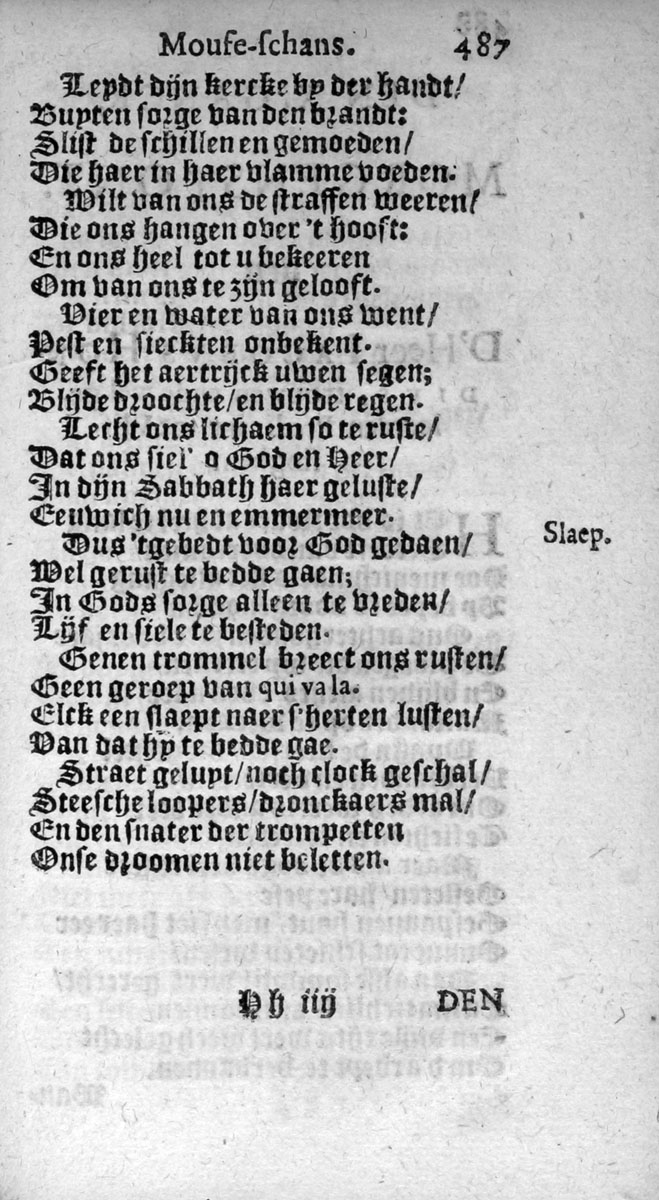 Mouse-schans. 487
Leydt dijn kercke by der handt/
Buyten sorge van den brandt:
Slist de schillen en gemoeden/
Die haer in haer vlamme voeden.
Wilt van ons de straffen weeren/
Die ons hangen over 't hooft:
En ons heel tot u bekeeren
Om van ons te zijn gelooft.
Vier en water van ons went/
Pest en sieckten onbekent.
Geeft het aertrijck uwen segen;
Blijde droochte/en blijde regen.
Lecht ons lichaem so te ruste/
Dat ons siel' o God en Heer/
In dijn Sabbath haer geluste/
Eeuwich nu en emmermeer.
Dus 'tgebedt voor God gedaen/
Slaep.
Wel gerust te bedde gaen;
In Gods sorge alleen te vreden/
Lijf en siele te besteden.
Genen trommel breect ons rusten/
Geen geroep van qui va la.
Elck een slaept naer s'herten lusten/
Van dat hy te bedde gae.
Straet geluyt/noch clock geschal/
Steesche loopers/dronckaers mal/
En den snater der trompetten
Onse droomen niet beletten.
Hh iij DEN